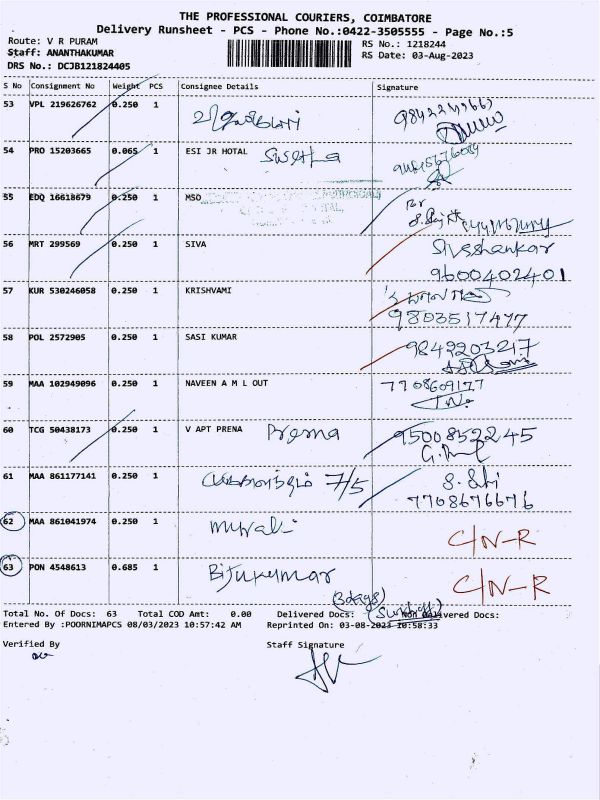 THE PROFESSIONAL COURIERS, COIMBATORE
Delivery Runsheet - PCS - Phone No.:0422-3505555 - Page No.:5
Route: V R PURAM
Staff: ANANTHAKUMAR
DRS No.: DCJB121824405
RS No.: 1218244
RS Date: 03-Aug-2023
S No Consignment No Weight PCS Consignee Details Signature
53 VPL 219626762 0.250 1
54 PRO 15203665 0.065 1 ESI JR HOTAL
55 EDQ 16618679 0.250 1 MSO
56 MRT 299569 0.250 1 SIVA Sivashankar
9600402401
57 KUR 530246058 0.250 1 KRISHVAMI
9803517477
58 POL 2572905 0.250 1 SASI KUMAR 9849203217
59 MAA 102949096 0.250 1 NAVEEN A M L OUT 7708609177
60 TCG 50438173 0.250 1 V APT PRENA Prema 9500852245
61 MAA 861177141 0.250 1 7/5
7708676676
62 MAA 861041974 0.250 1 Murali C/N-R
63 PON 4548613 0.685 1 Bijukumar C/N-R
(3days)
Total No. Of Docs: 63 Total COD Amt: 0.00 Delivered Docs: Non Delivered Docs:
Entered By :POORNIMAPCS 08/03/2023 10:57:42 AM Reprinted On: 03-08-2023 10:58:33
Verified By Staff Signature